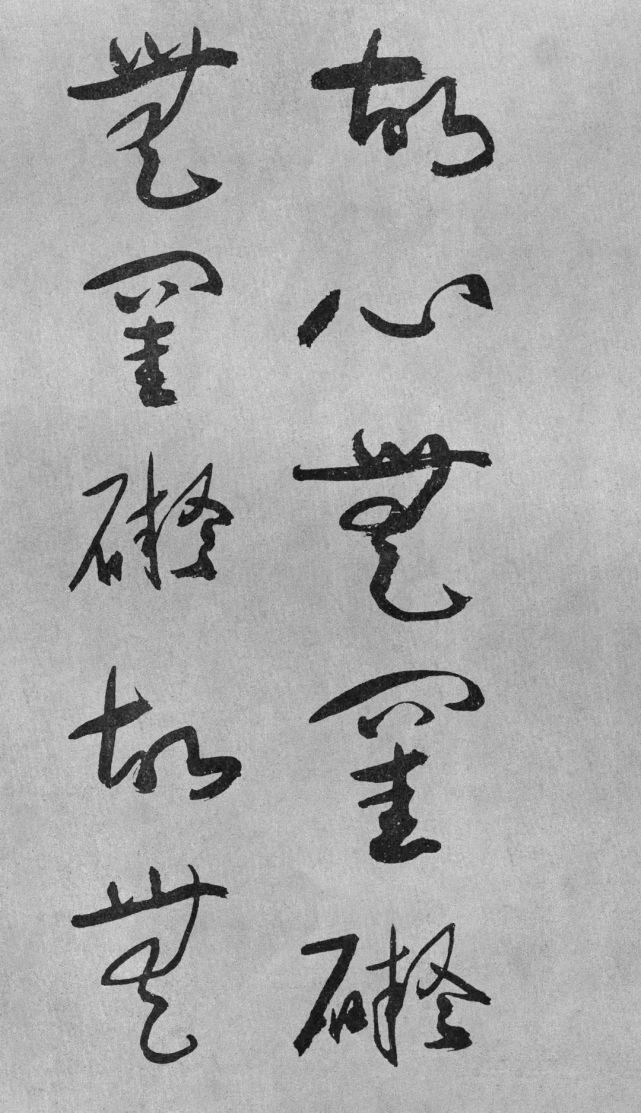 故心無罣礙
無罣礙故無